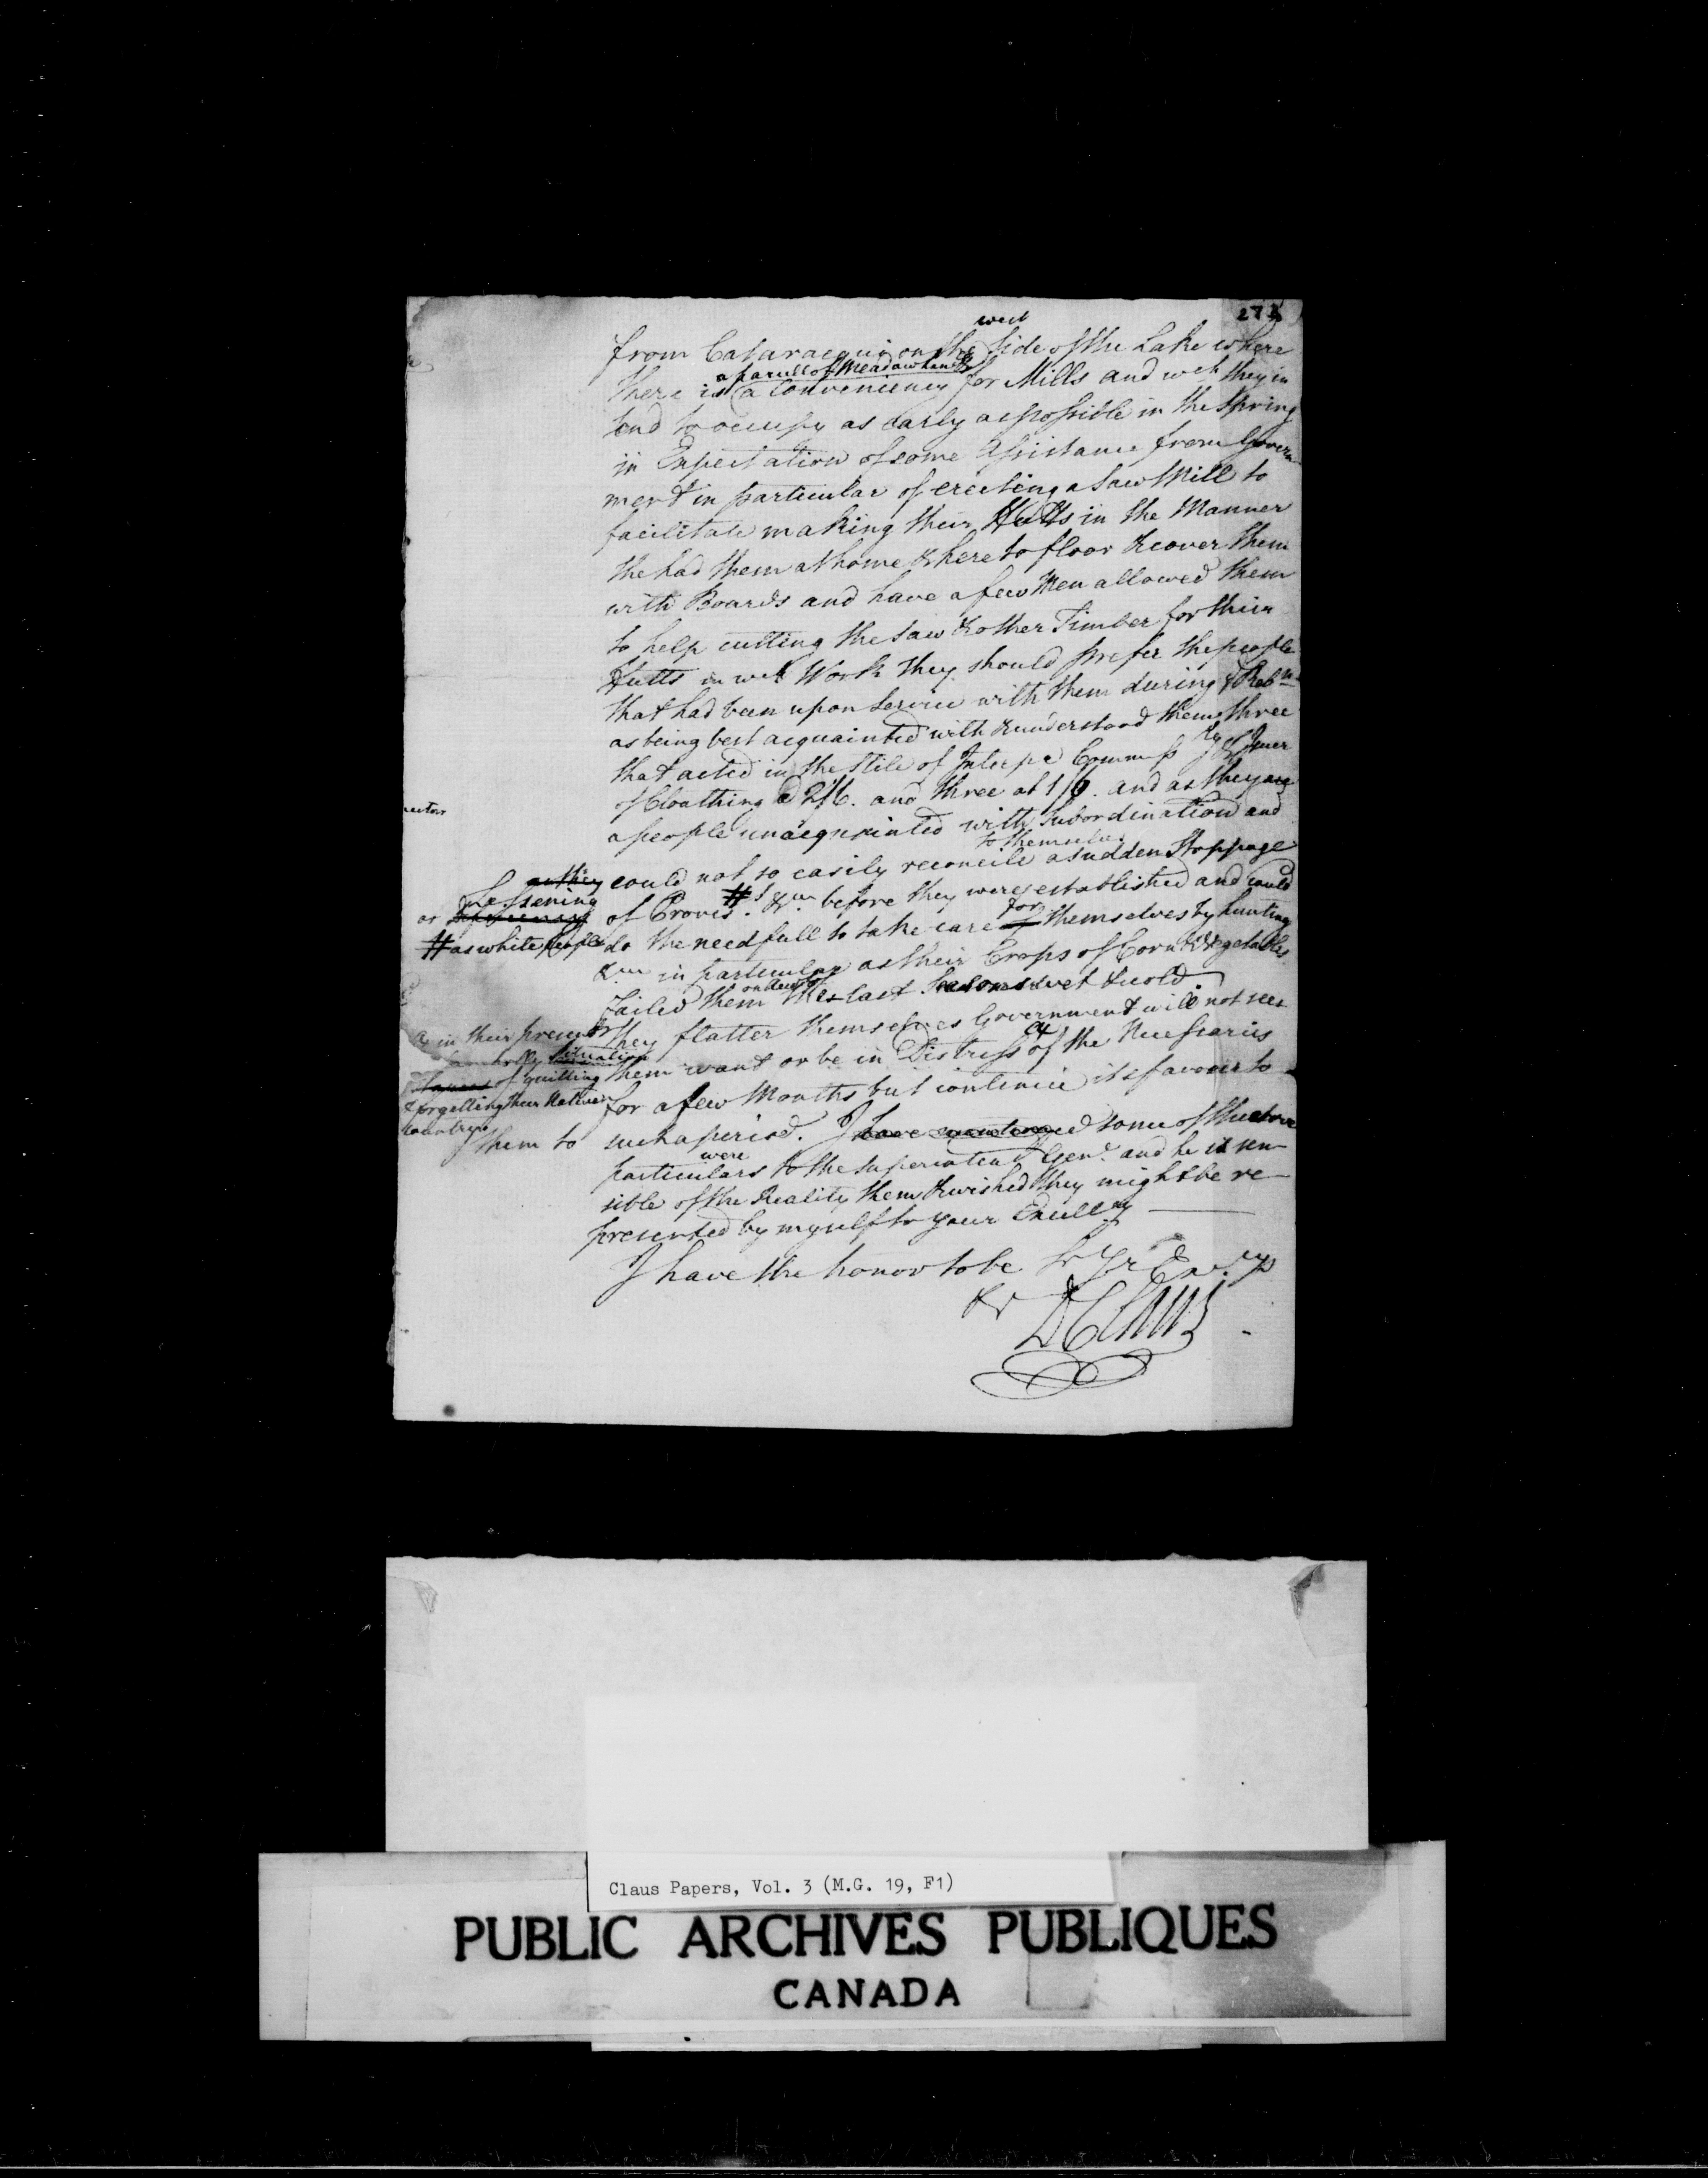 273
west
from Cataracqui on the side of the Lake where
a parcell of Meadow Land &
there is a Conveniency for Mills and wch they in
tend to occupy as early as possible in the Spring
in Expectation of some Assistance from Govern
ment in particular of erecting a Saw Mill to
facilitate making their Hutts in the Manner
the had them at home & here to floor & cover them
with Boards and have a few Men allowed them
to help cutting the Saw & other Timber for their
Hutts in wch Work they should prefer the people
that had been upon Service with them during ye Rebn
as being best acquainted with & understood them three
that acted in the Stile of Interpr Commss
of Cloathing @ 2/6. and three at 1/6. and as they are
a people unacquainted with Subordination and
to themselves
as they could not so easily reconcile a sudden Stoppage
Lessening
or of Provis. # &ca before they were established and could
for
# as white people do the needfull to take care of themselves by hunting
&ca in particular as their Crops of Corn & Vegetables
on acct of
failed them the last Season wet & cold
as in their present they flatter themselves Government will not see
situation
them want or be in Distress of the Necessaries
of quitting
& forgetting their Native for a few Months but continue its favour to
Country
them to such a period. I have mentioned some of the above
were
particulars to the Superintend Genl. and he is sen
sible of the Reality them & wished they might be re
presented by myself to your Excellcy
I have the honor to be Sr Yr Excys
&c DClaus
Claus Papers, Vol. 3 (M.G. 19, F1)
PUBLIC ARCHIVES PUBLIQUES
CANADA